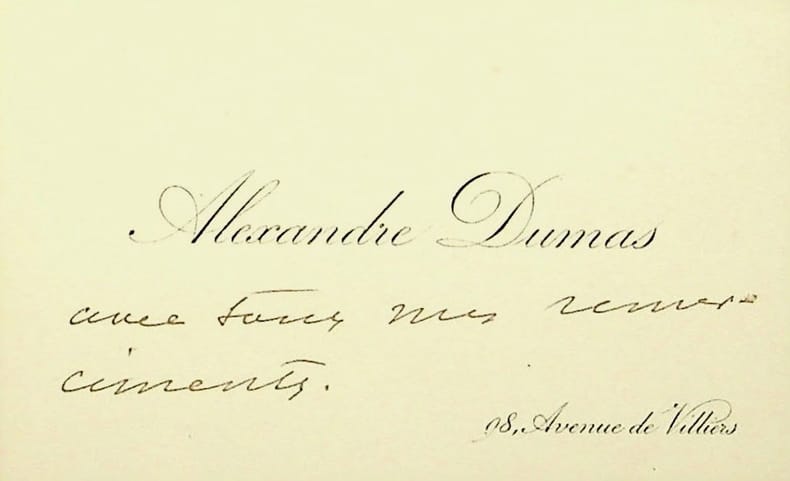 Alexandre Dumas
avec tous mes remer-
ciments.
98, Avenue de Villiers